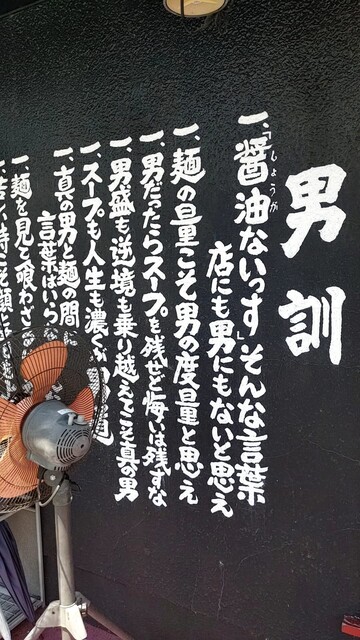 男訓
一、「醤油ないっす」そんな言葉
しょうが
店にも男にもないと思え
一、麺の量こそ男の度量と思え
一、男だったらスープを残せど悔いは残すな
一、男盛も逆境も乗り越えてこそ真の男
一、スープも人生も濃く
道
一、真の男と麺の間
言葉はいら
一、麺を見て喰わざ